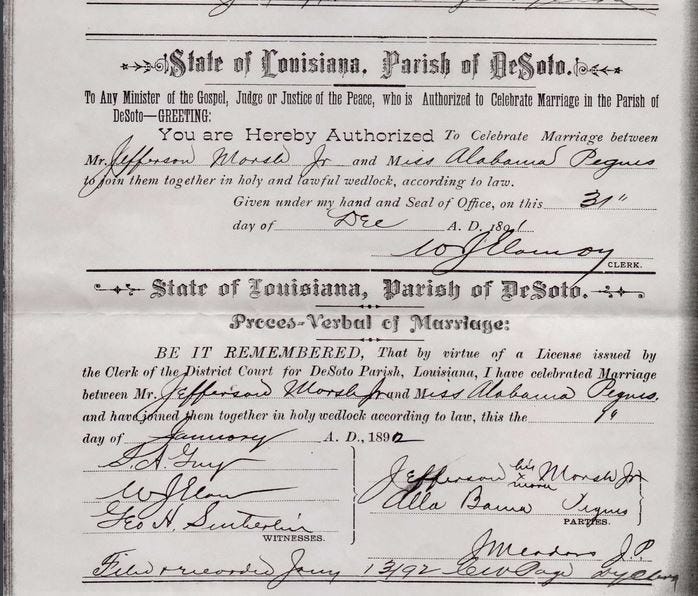 State of Louisiana. Parish of DeSoto.
To Any Minister of the Gospel, Judge or Justice of the Peace, who is Authorized to Celebrate Marriage in the Parish of
DeSoto—GREETING:
You are Hereby Authorized To Celebrate Marriage between
Mr. Jefferson Marsh Jr and Miss Alabama Pegues
to join them together in holy and lawful wedlock, according to law.
Given under my hand and Seal of Office, on this 31"
day of Dec A. D. 1891
CLERK.
State of Louisiana, Parish of DeSoto.
Proces-Verbal of Marriage:
BE IT REMEMBERED, That by virtue of a License issued by
the Clerk of the District Court for DeSoto Parish, Louisiana, I have celebrated Marriage
between Mr. Jefferson Marsh Jr and Miss Alabama Pegues.
and have joined them together in holy wedlock according to law, this the 1"
day of January A. D., 1892
S. A. Guy
Geo H. Sutherlin
WITNESSES.
Jefferson his x mark Marsh Jr
Alla Bama Pegues
PARTIES.
J Meadors J. P.
Filed & recorded Jany 13/92